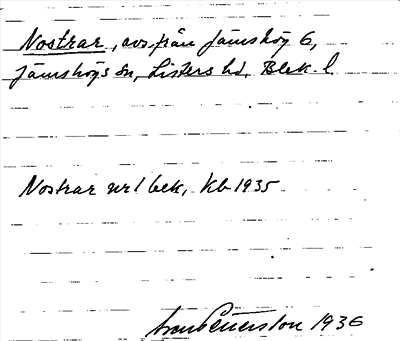 Nostrar, avs. från Jämshög 6,
Jämshögs sn, Listers hd, Blek. l.
Nostrar nr 1 bek, Kb 1935
1936